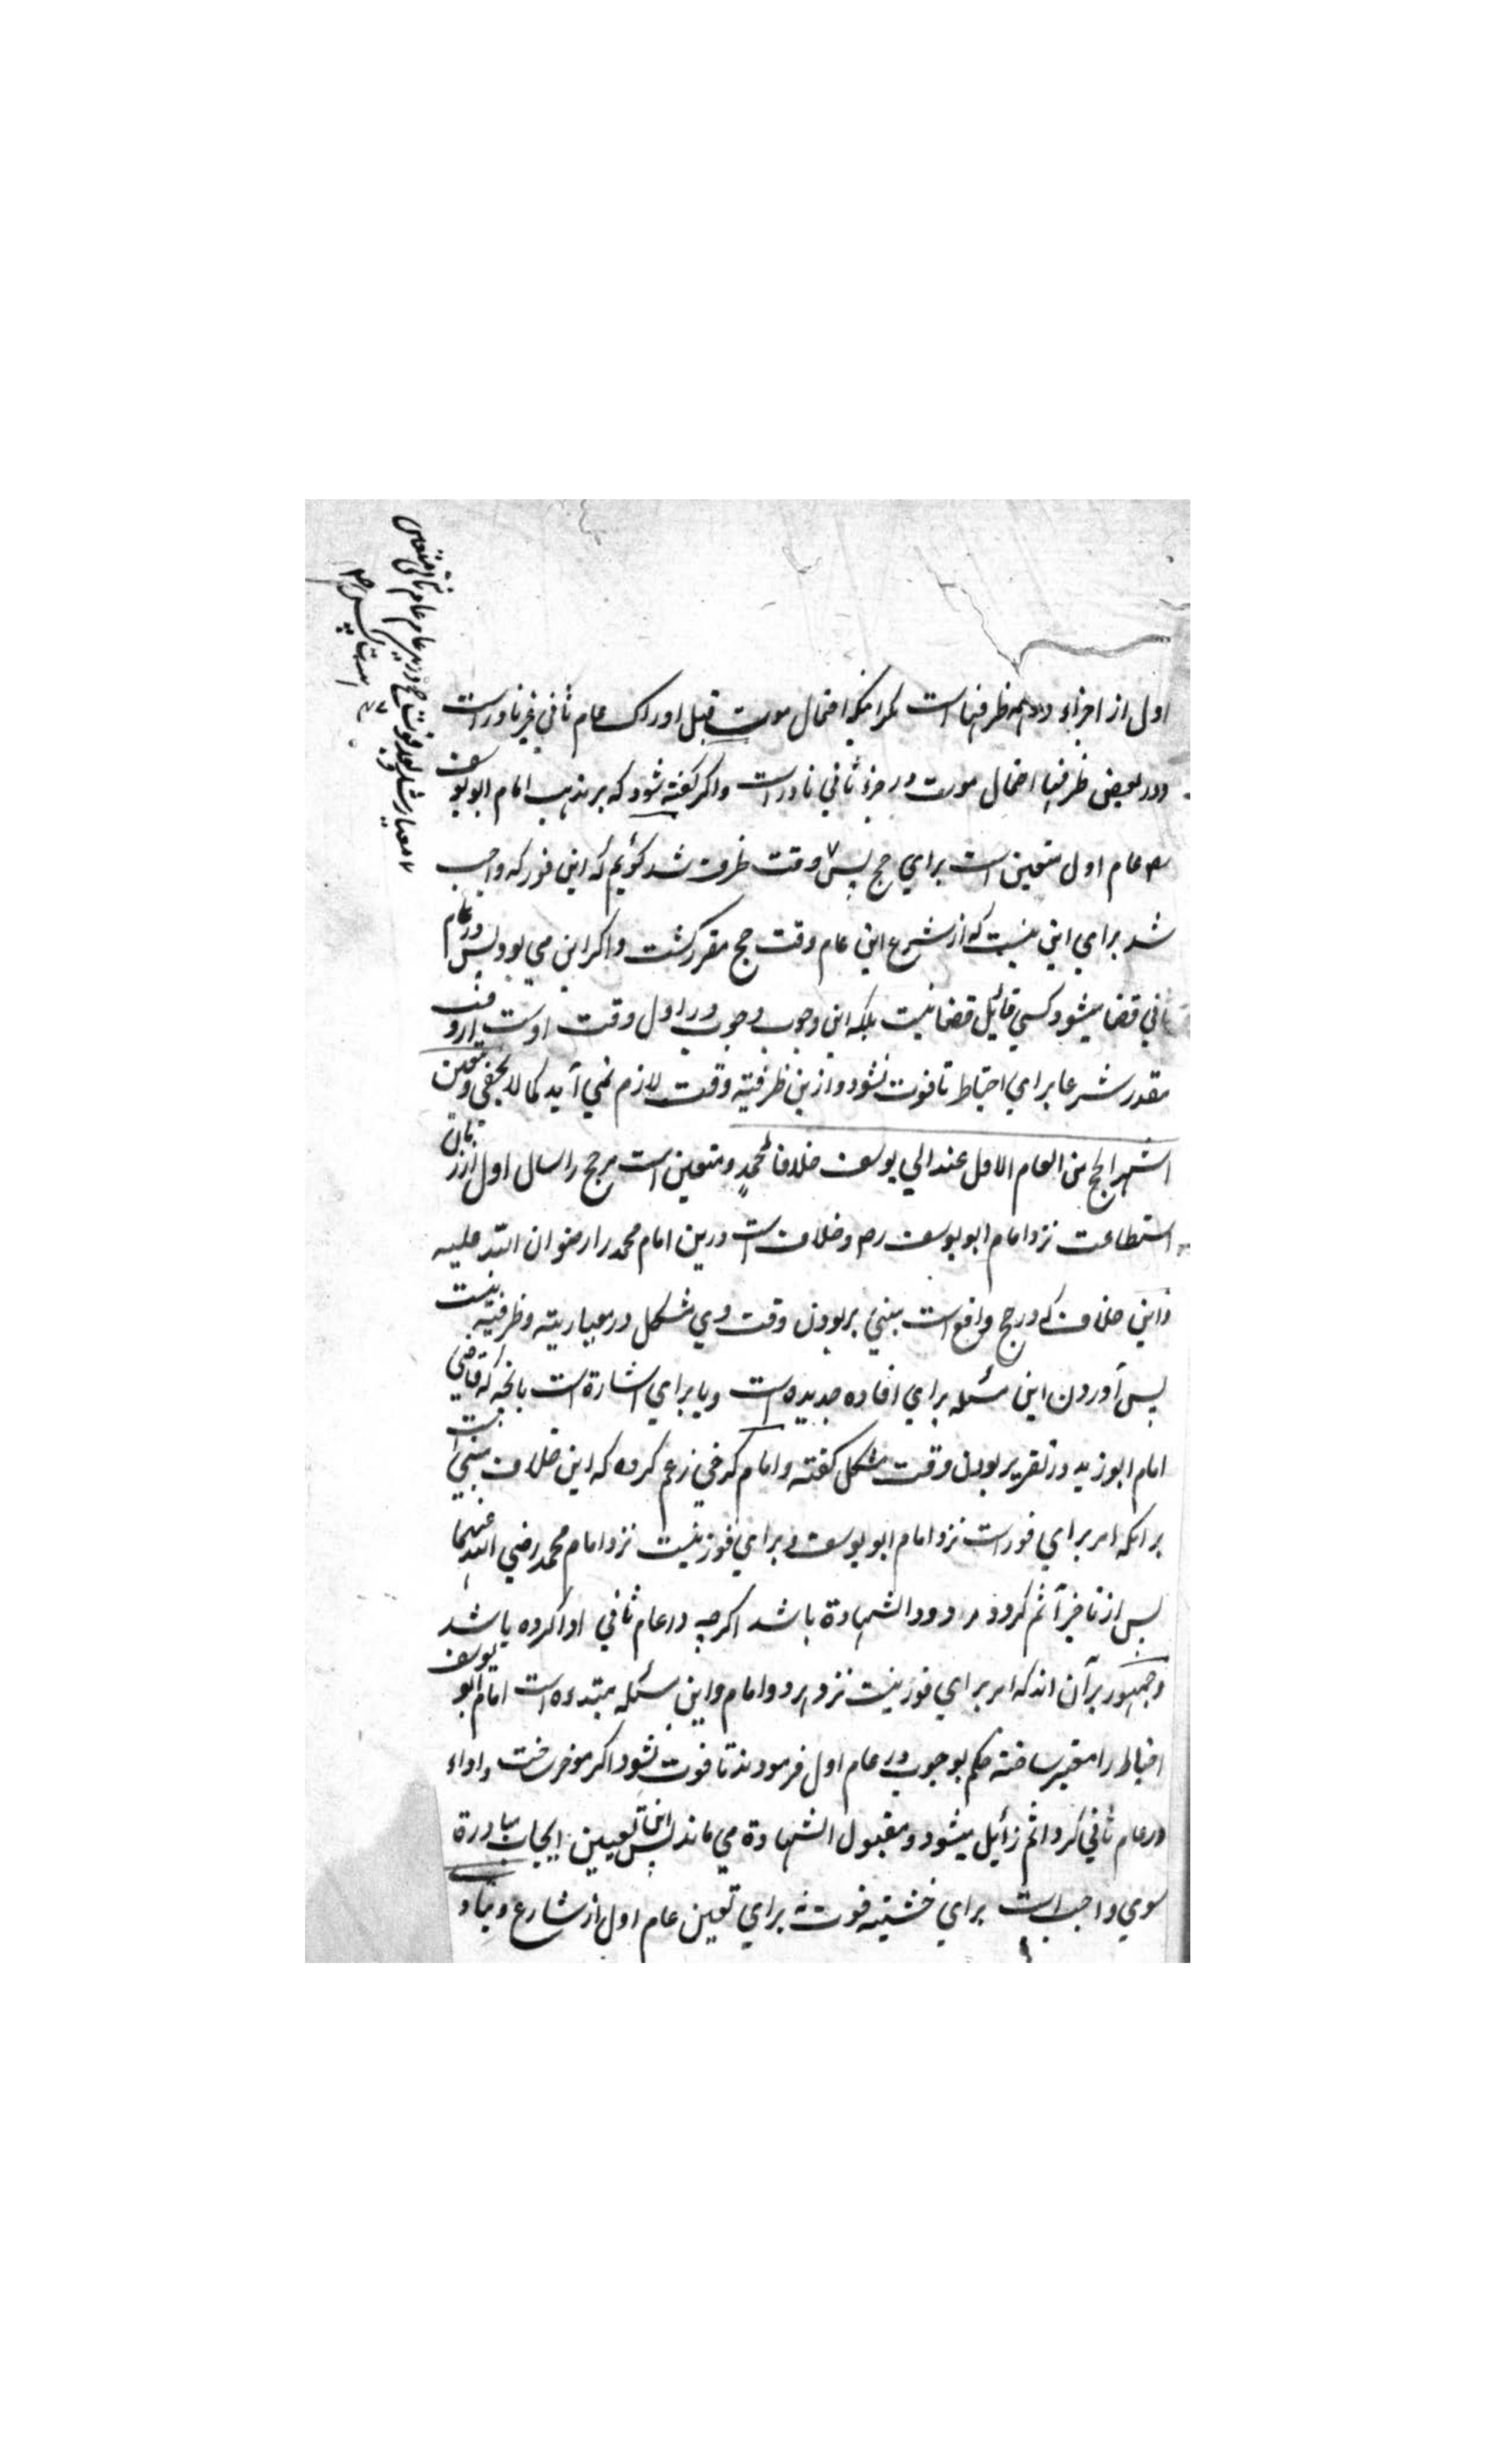 اول از اجزاء و در همه ظرفهاست مگر اینکه احتمال موت قبل ادراک عام ثانی غیر نادر است
و در بعض ظرفها احتمال موت در جزء ثانی نادر است و اگر گفته شود که بر مذهب امام ابو یوسف
رح عام اول متعین است برای حج پس وقت ظرف شد گوئیم که این فور که واجب
شد برای این نیست که از شرع این عام وقت حج مقرر گشت و اگر این می بود پس در عام
ثانی قضا میشود کسی قائل قضا نیست بلکه این وجوب وجوب در اول وقت اوست از وقت
مقدر شرعا برای احتیاط تا فوت نشود و ازین ظرفیه وقت لازم نمی آید کما لا یخفی و متعین
اشهر الحج من العام الاول عند ابی یوسف خلافا لمحمد و متعین است مر حج را سال اول از زمان
استطاعت نزد امام ابو یوسف رح و خلاف است درین امام محمد را رضوان الله علیه
و این خلاف که در حج واقع است مبنی بر بودن وقت وی مشکل در معیاریته و ظرفیته نیست
پس آوردن این مسئله برای افاده جدیده است و یا برای اشارة است بانچه که قاضی
امام ابو زید در تقریر بودن وقت مشکل گفته و امام کرخی زعم کرده که این خلاف مبنی است
برانکه امر برای فور است نزد امام ابو یوسف و برای فور نیست نزد امام محمد رضی الله عنهما
پس از تاخیر آثم گردد و مردود الشهادة باشد اگرچه در عام ثانی ادا کرده باشد
و جمهور بر آن اند که امر برای فور نیست نزد هر دو امام و این مسئله مبتدءه است امام ابو یوسف
احتیاط را معتبر ساخته حکم بوجوب در عام اول فرمودند تا فوت نشود اگر موخر ساخت و اداء
در عام ثانی کرد اثم زائیل میشود و مقبول الشهادة می ماند پس این تعیین ایجاب مبادرة
سوی واجب است برای خشیته فوت نه برای تعین عام اول از شارع و بنا